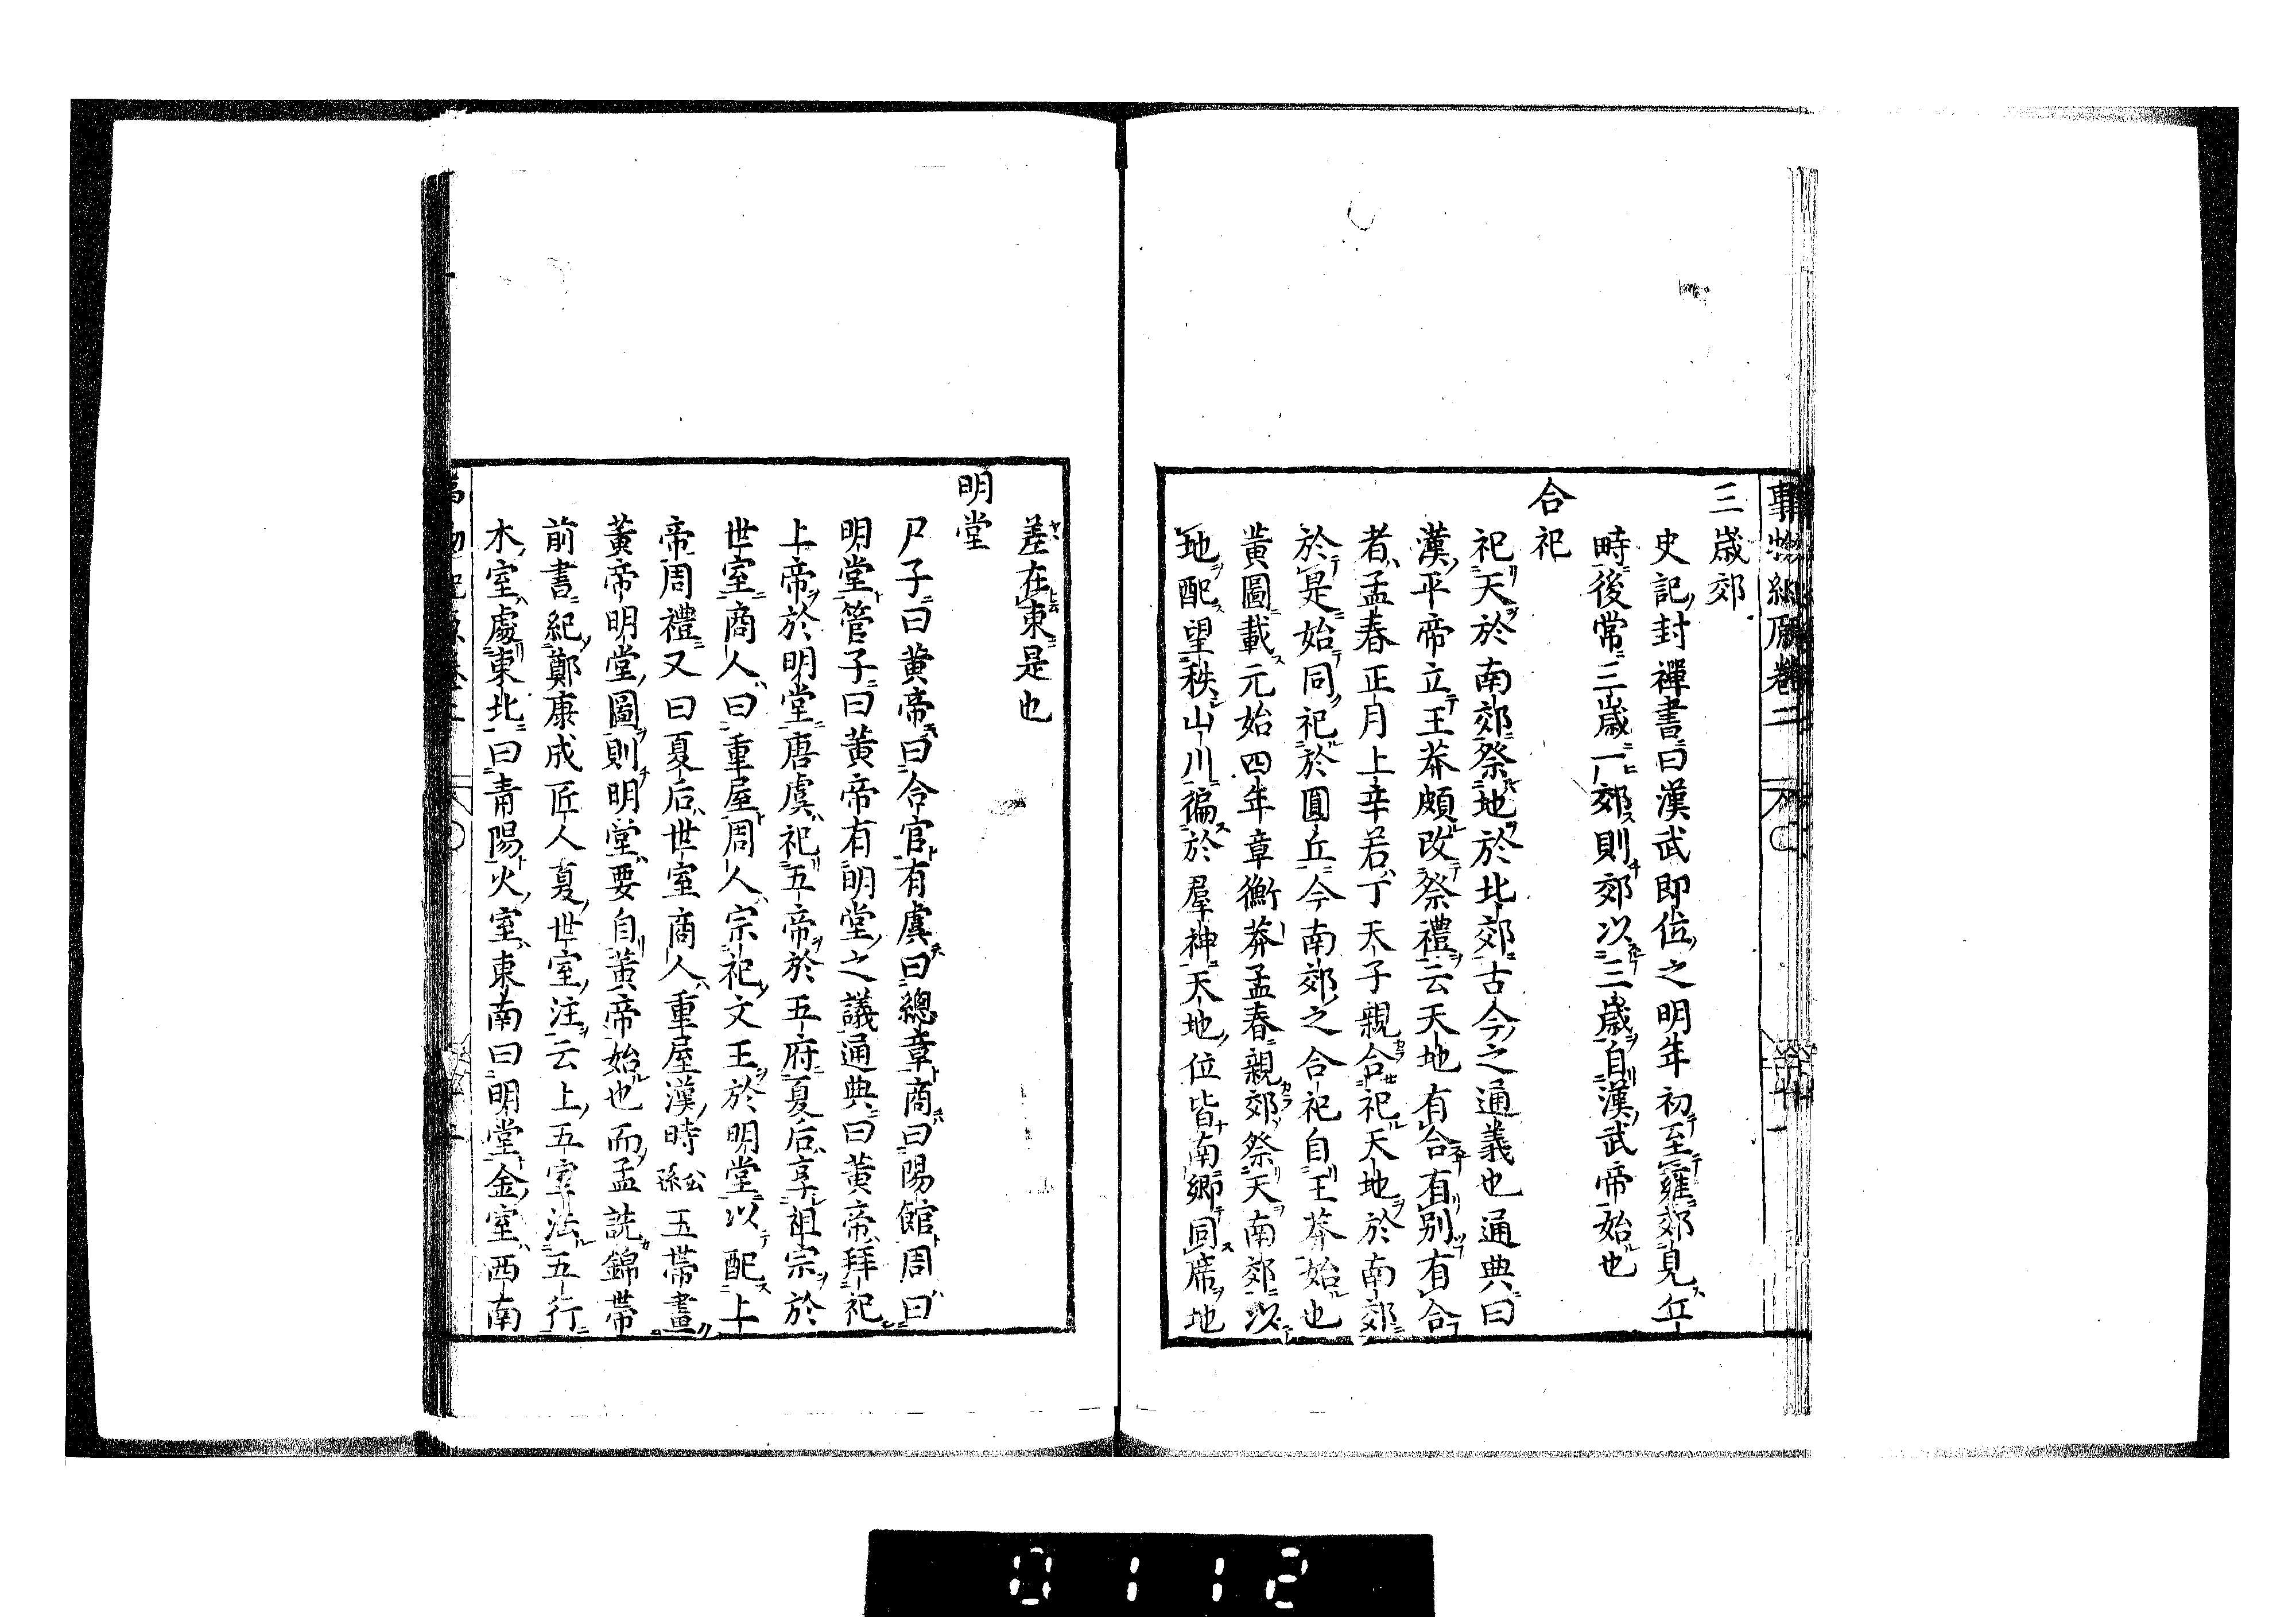 事物紀原卷二
三歲郊
史記封禪書曰漢武即位之明年初至雍郊見五
時後常三歲一郊則郊以三歲自漢武帝始也
合祀
祀天於南郊祭地於北郊古今之通義也通典曰
漢平帝立王莽頗改祭禮云天地有合有別有合
者孟春正月上辛若丁天子親合祀天地於南郊
於是始同祀於圓丘今南郊之合祀自王莽始也
黃圖載元始四年章衡莽孟春親郊祭天南郊以
地配望秩山川徧於羣神天地位皆南鄉同席地
差在東是也
明堂
尸子曰黃帝曰合官有虞曰總章商曰陽館周曰
明堂管子曰黃帝有明堂之議通典曰黃帝拜祀
上帝於明堂唐虞祀五帝於五府夏后享祖宗於
世室商人曰重屋周人宗祀文王於明堂以配上
帝周禮又曰夏后世室商人重屋漢時公孫玉帶畫
黃帝明堂圖則明堂要自黃帝始也而孟詵錦帶
前書紀鄭康成匠人夏世室注云上五室法五行
木室處東北曰青陽火室東南曰明堂金室西南
0112